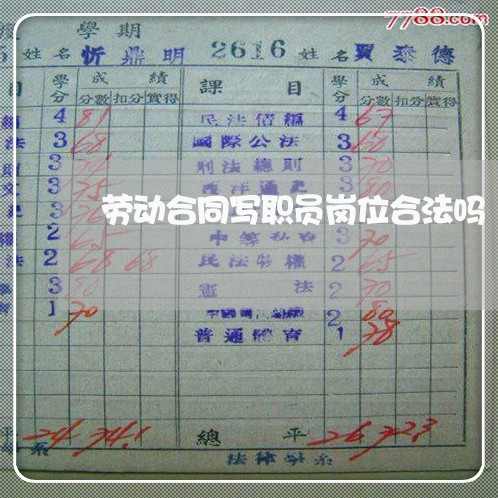 7788.com
學期
姓名 忻鼎明 2616 姓名 賈泰德
目 學分 成績 課目 學分 成績
分數 扣分 實得 分數 扣分 實得
4 81 民法債編 4 67
法 3 68 國際公法 3 60
3 刑法總則 3 70
3 75 西洋通史 3 80
劳动合同写职员岗位合法吗
2 65 3 70
法 2 68 68 民法物權 2 65
3 80 憲法 2 70
1 70 2 80
普通體育 1 78
平 24 74.1 總平 26 72.3
系 法律學系